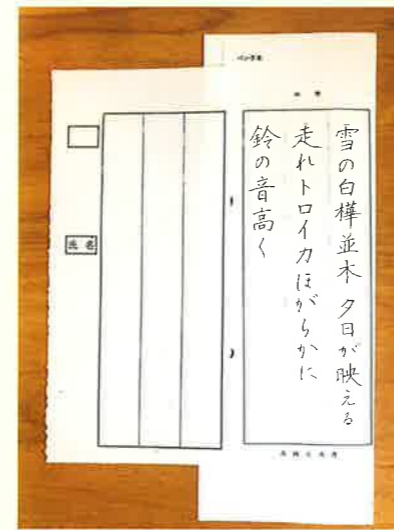 雪の白樺並木 夕日が映える
走れトロイカほがらかに
鈴の音高く
氏名